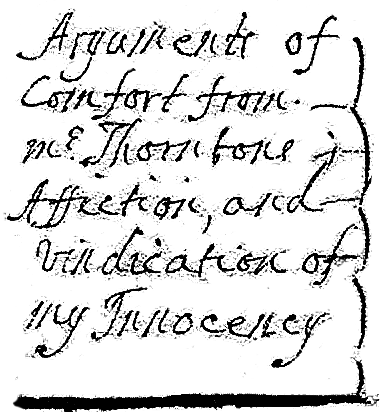 Arguments of
Comfort from
mr. Thorntons
Affection, and
Vindication of
my Innocency